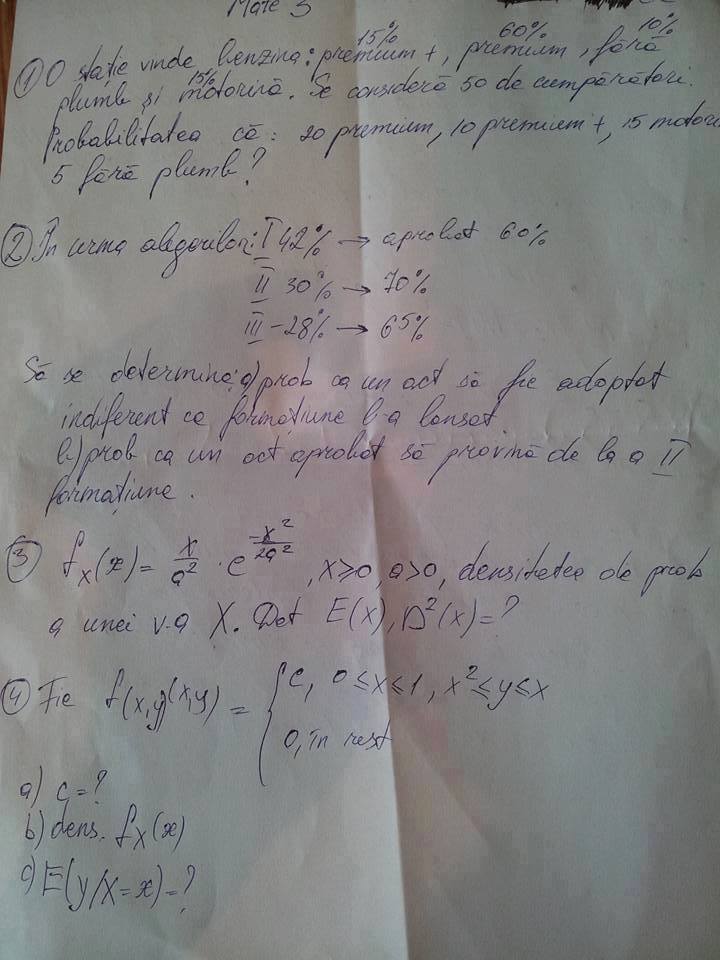 Mate 3
15% 60% 10%
① O stație vinde benzină: premium+, premium, fără
15%
plumb și motorină. Se consideră 50 de cumpărători.
Probabilitatea că: 20 premium, 10 premium+, 15 motori
5 fără plumb?
② În urma alegerilor: I 42% → aprobat 60%
II 30% → 70%
III - 28% → 65%
Să se determine: a) prob ca un act să fie adoptat
indiferent ce formațiune l-a lansat.
b) prob ca un act aprobat să provină de la a II
formațiune.
③ f_X(x) = x/a² · e^(-x²/2a²), x≥0, a>0, densitatea de prob
a unei v.a X. Det E(x), D²(x)=?
④ Fie f(x,y)(x,y) = { c, 0≤x≤1, x²≤y≤x
0, în rest
a) c=?
b) dens. f_X(x)
c) E(y/X=x)=?